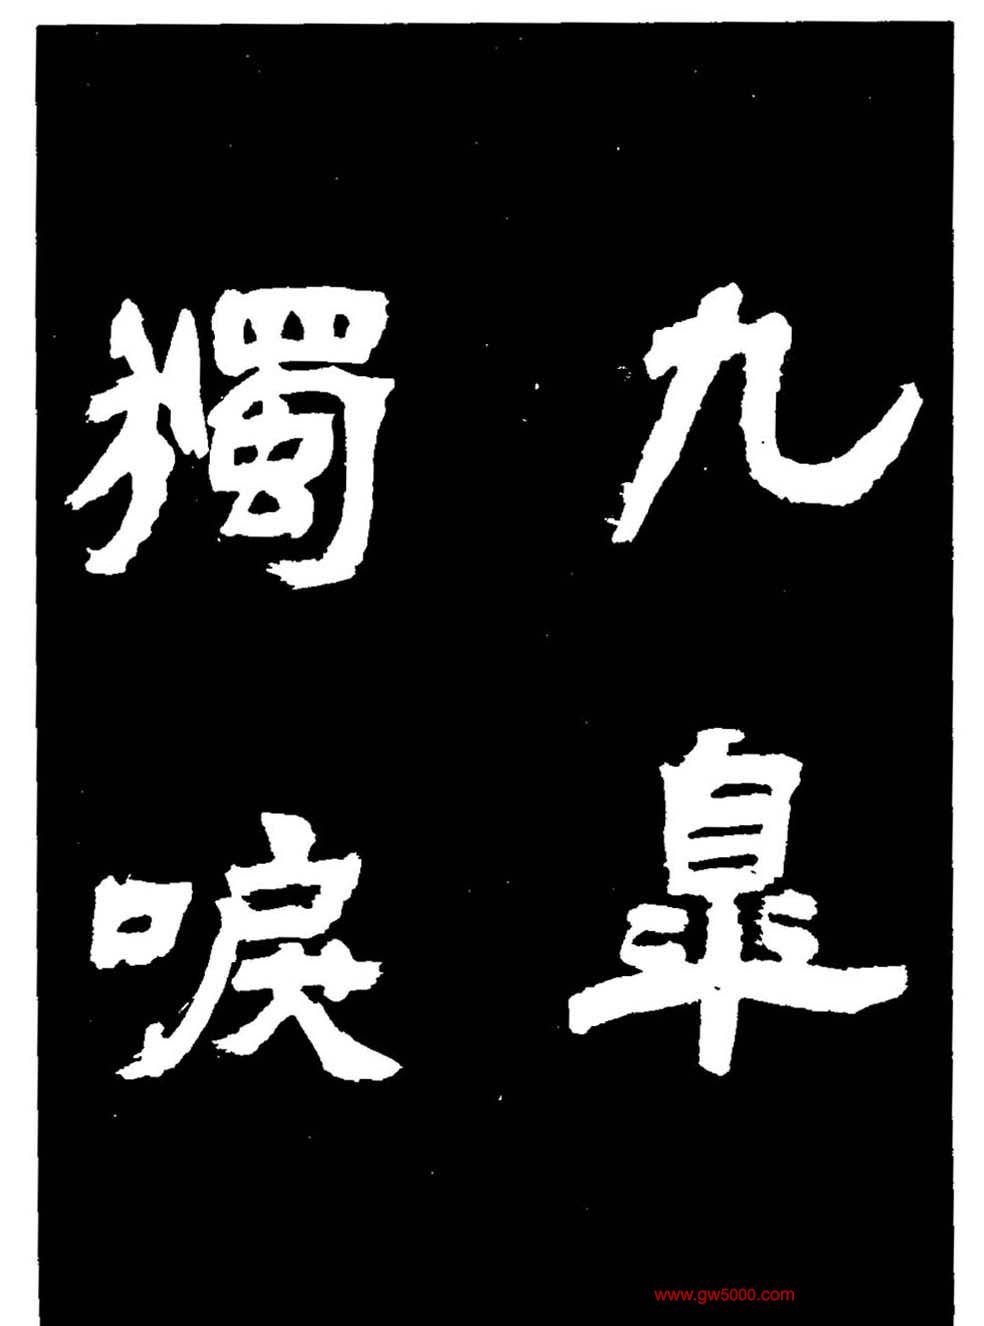 九皐
獨唳
www.gw5000.com